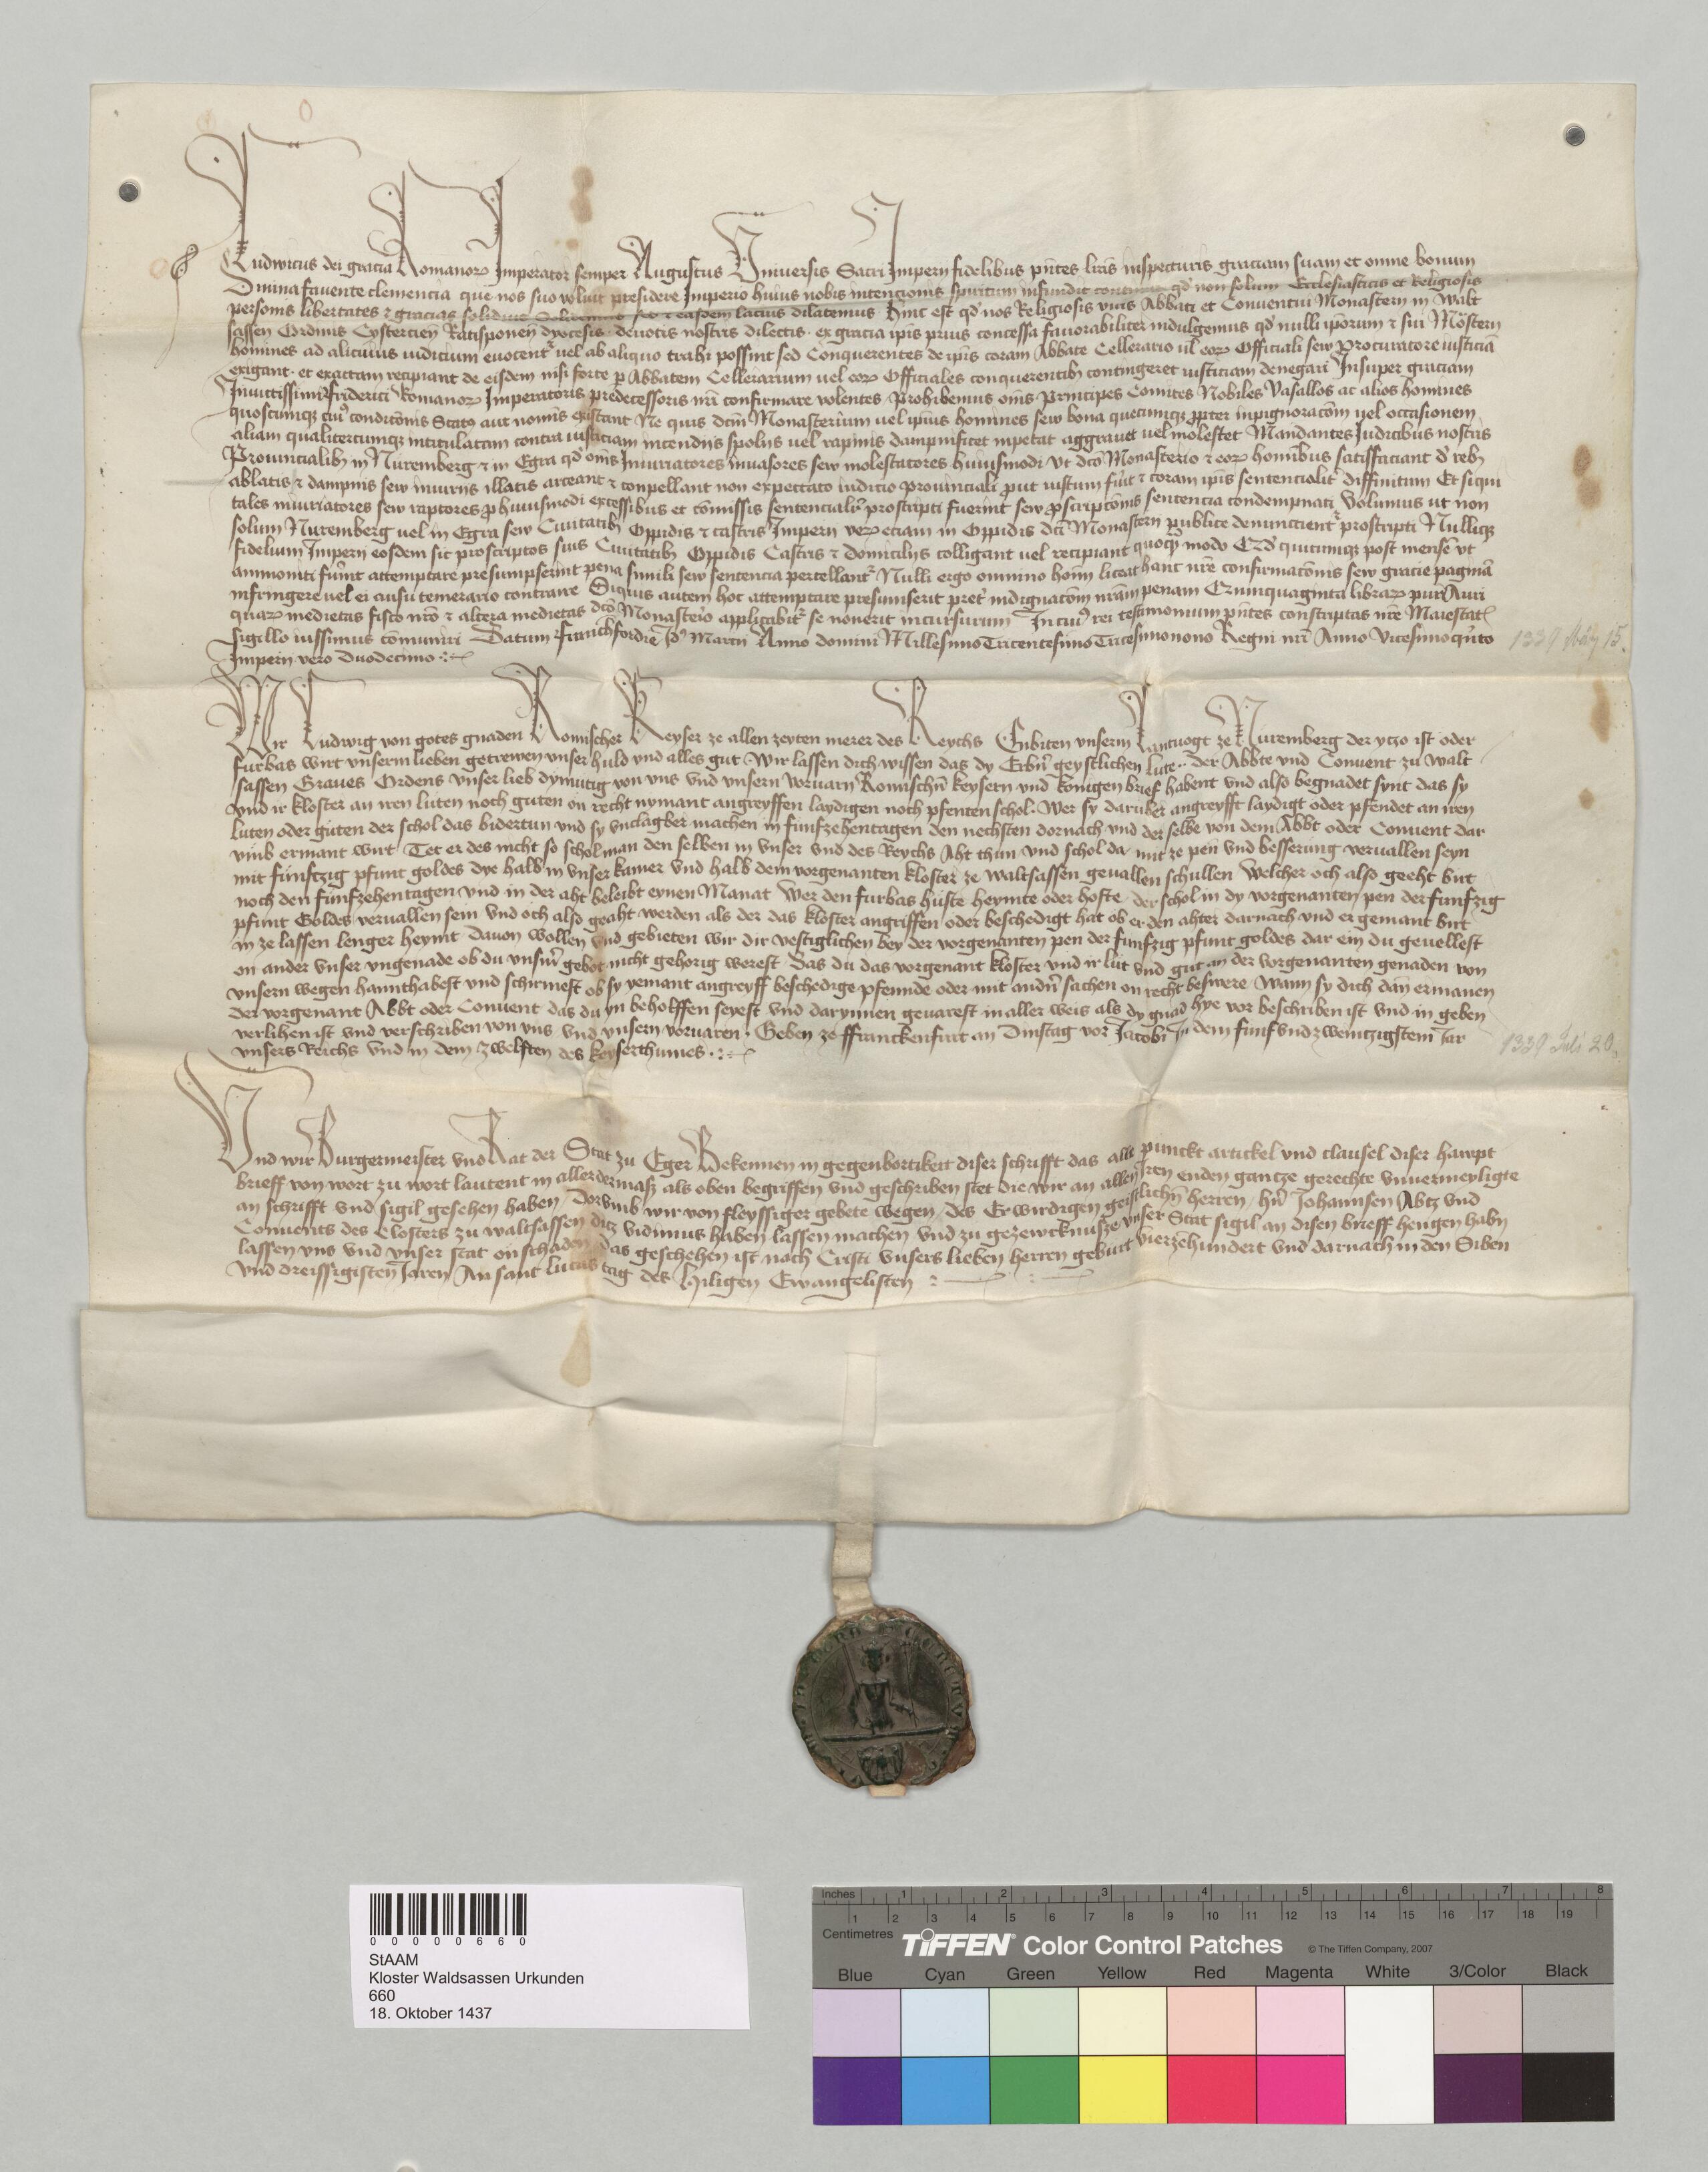 Ludwicus dei gracia Romanoꝝ Imperator semper Augustus Vniuersis Sacri Imperii fidelibus pn̄tes lr̄as inspecturis graciam suam et omne bonum
Diuina fauente clemencia que nos suo voluit presidere Imperio huius nobis intencionis spiritum infundit qd̓ non solum Ecclesiasticis et Religiosis
personis libertates ⁊ gracias easdem lacius dilatemus Hinc est qd̓ nos Religiosis viris Abbati et Conuentui Monasterii in Walt
sassen Ordinis Cystercien̄ Ratisponen̄ dyocesis deuotis nostris dilectis ex gracia ip̄is prius concessa fauorabiliter indulgemus qd̓ nulli ip̄orum ⁊ sui Mo̅sterii
homines ad alicuius iudicium euocentᷣ uel ab aliquo trahi possint sed Conquerentes de ip̄is coram Abbate Cellerario ul̓ eoꝝ Officiali sew Procuratore iusticiā
exigant et exactam recipiant de eisdem nisi forte ꝑ Abbatem Cellerarium uel eoꝝ Officiales conquerentibꝫ contingeret iusticiam denegari Insuper graciam
Inuictissimi Friderici Romanoꝝ Imperatoris predecessoris nr̄i confirmare volentes Prohibemus om̄is Principes Comites Nobiles Vasallos ac alios homines
quoscumqꝫ cuiꝰ condicōnis Statꝰ aut nomīs existant Ne quis dictū Monasterium uel ipsius homines sew bona quecumqꝫ ꝓpter inpignoracōm uel occasionem
aliam qualitercumqꝫ intitulatam contra iusticiam incendiis spoliis uel rapinis dampnificet inpetat aggrauet uel molestet Mandantes Iudicibus nostris
Prouincialibꝫ in Nuremberg ⁊ in Egra qd̓ om̄is Iniuriatores inuasores sew molestatores huiusmodi vt dc̄o Monasterio ⁊ eoꝝ hominibus satisfaciant d̓ rebꝫ
ablatis ⁊ dampnis sew iniuriis illatis arceant ⁊ conpellant non expectato iudicio prouinciali prout iustum fūit ⁊ coram ip̄is sentencialiter diffinitum Et si qui
tales iniuriatores sew raptores ꝓ huiusmodi excessibus et cōmissis sentencialiter proscripti fuerint sew ꝓscripcōnis sentencia condempnati Volumus ut non
solum Nuremberg uel in Egra sew Ciuitatibꝫ Oppidis ⁊ castris Imperii veꝝ eciam in Oppidis dc̄i Monasterii publice denunccientᷣ proscripti Nullusqꝫ
fidelium Imperii eosdem sic proscriptos suis Ciuitatibꝫ Oppidis Castris ⁊ domiciliis colligant uel recipiant quoqꝫ modo qd̓ quicumqꝫ post mense vt
ammoniti fūint attemptare presumpserint pena simili sew sentencia percellantᷣ Nulli ergo omnino hoīm liceat hanc nr̄e confirmacōnis sew gracie paginā
infringere uel ei ausu temerario contraire Siquis autem hoc attemptare presumserit pret̓ indignacōm nr̄am penam Quinquaginta libraꝝ puri Auri
quaꝝ medietas fisco nr̄o ⁊ altera medietas dc̄o Monasterio applicabitᷣ se nouerit incursurum In cuiꝰ rei testimonium pn̄tes conscriptas nr̄e Maiestatꝭ
sigillo iussimus cōmuniri Datum Franchfordie Jd̓ Marcii Anno domini Millesimo Tricentesimo Tricesimonono Regni nr̄i Anno Vicesimoqn̄to
Imperii vero Duodecimo
1339 März 15.
Wir Ludwig von gotes gnaden Romischer Keyser ze allen zeyten merer des Reychs Enbiten vnserm Lantuogt ze Nuremberg der yczo ist oder
furbas wirt vnserm lieben getrewen vnser huld vnd alles gut Wir lassen dich wissen das dy Erbn̄ geystlichen lute der Abbte vnd Conuent zu Walt
sassen Graues Ordens vnser lieb dymutig von vns vnd vnsern voruarn Romischn̄ keysern vnd konigen brief habent vnd also begnadet synt das sy
vnd ir kloster an iren luten noch guten on recht nymant angreyffen laydigen noch pfenten schol. Wer sy daruber angreyfft laydigt oder pfendet an iren
luten oder guten der schol das bidertun vnd sy vnclagber machen in funfzehentagen den nechsten dornach vnd der selbe von dem Abbt oder Conuent dar
vmb ermant wirt Tet er des nicht so schol man den selben in vnser vnd des Reychs Aht thun vnd schol da mit ze pen vnd besserung veruallen seyn
mit funftzig pfunt goldes dye halb in vnser kamer vnd halb dem vorgenanten kloster ze waltsassen geuallen schullen Welcher och also geeht wirt
noch den funfzehentagen vnd in der aht beleibt eynen Manat Wer den furbas huste heymte oder hofte der schol in dy vorgenanten pen der funfzig
pfunt Goldes veruallen sein vnd och also geaht werden als der das kloster angriffen oder beschedigt hat ob er den ahter darnach vnd er gemant wirt
in ze lassen lenger heymt Dauon wollen vnd gebieten wir dir vestiglichen bey der vorgenanten pen der funfzig pfunt goldes dar ein du geuellest
on ander vnser vngenade ob du vnsm̄ gebot nicht gehorig werest Das du das vorgenant kloster vnd ir lut vnd gut an der vorgenanten genaden von
vnsern wegen hannthabest vnd schirmest ob sy yemant angreyff beschedige pfennde oder mit andn̄ sachen on recht beswere Wann sy dich dan ermanen
der vorgenant Abbt oder Conuent das du yn beholffen seyest vnd darynnen geuarest in aller weis als dy gnad hye vor beschriben ist vnd in geben
verlihen ist vnd verschriben von vns vnd vnsern voruaren. Geben ze ffranckenfurt an Dinstag vor Jacobi In dem funfvndzweintzigstem Jar
vnsers Reichs vnd in dem zwelften des keyserthumes
1339 Juli 20.
Vnd wir Burgermeister vnd Rat der Stat zu Eger Bekennen in gegenbortikeit diser schrifft das alle punckt artickel vnd clausel diser hawpt
brieff von wort zu wort lautent in allerdermasz als oben begriffen vnd geschriben stet die wir an allen Iren enden gantze gerechte vnuermeyligte
an schrifft vnd sigil gesehen haben Dorvmb wir von fleyssiger gebete wegen des Erwirdigen geistlichn̄ herren hn̄ Johannsen Abtz vnd
Conuents des Closters zu waltsassen ditz vidimus haben lassen machen vnd zu gezewcknusze vnser Stat sigil an disen brieff hengen habn̄
lassen vns vnd vnser stat on schaden Das geschehen ist nach Cristi vnsers lieben herren geburt vierzehundert vnd darnach in den Siben
vnd dreissigisten Jaren An sant lucas tag des Hiligen Ewangelisten
00000660
StAAM
Kloster Waldsassen Urkunden
660
18. Oktober 1437
Inches 1 2 3 4 5 6 7 8
1 2 3 4 5 6 7 8 9 10 11 12 13 14 15 16 17 18 19
Centimetres
TIFFEN® Color Control Patches © The Tiffen Company, 2007
Blue Cyan Green Yellow Red Magenta White 3/Color Black